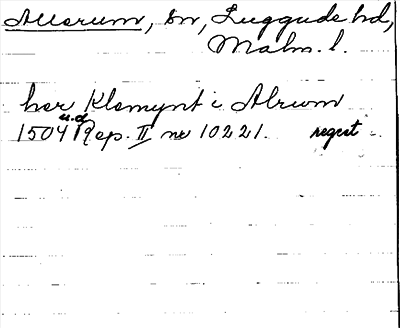 Allerum, sn, Luggude hd,
Malm. l.
her Klemynt i Alrwm
1504 u.d. Rep. II nr 10221. regest